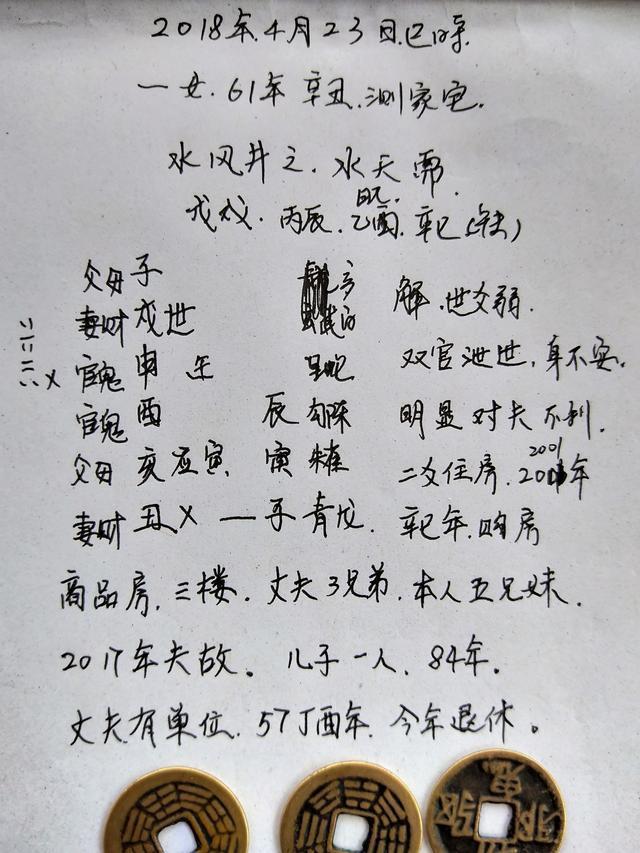 2018年.4月23日.巳时.
一女.61年 辛丑.测家宅.
水风井之.水天需.
戊戌.丙辰.乙酉.辛巳
父母子
妻财戌世 解.世爻弱.
官鬼申 午 双官泄世.身不安.
官鬼酉 辰勾陈 明显对夫不利.
父母亥应寅 寅朱雀 二爻住房.2001年
妻财丑X 一子青龙. 辛巳年.购房
商品房.三楼.丈夫3兄弟.本人五兄妹.
2017年夫故。儿子一人.84年.
丈夫有单位.57丁酉年.今年退休。